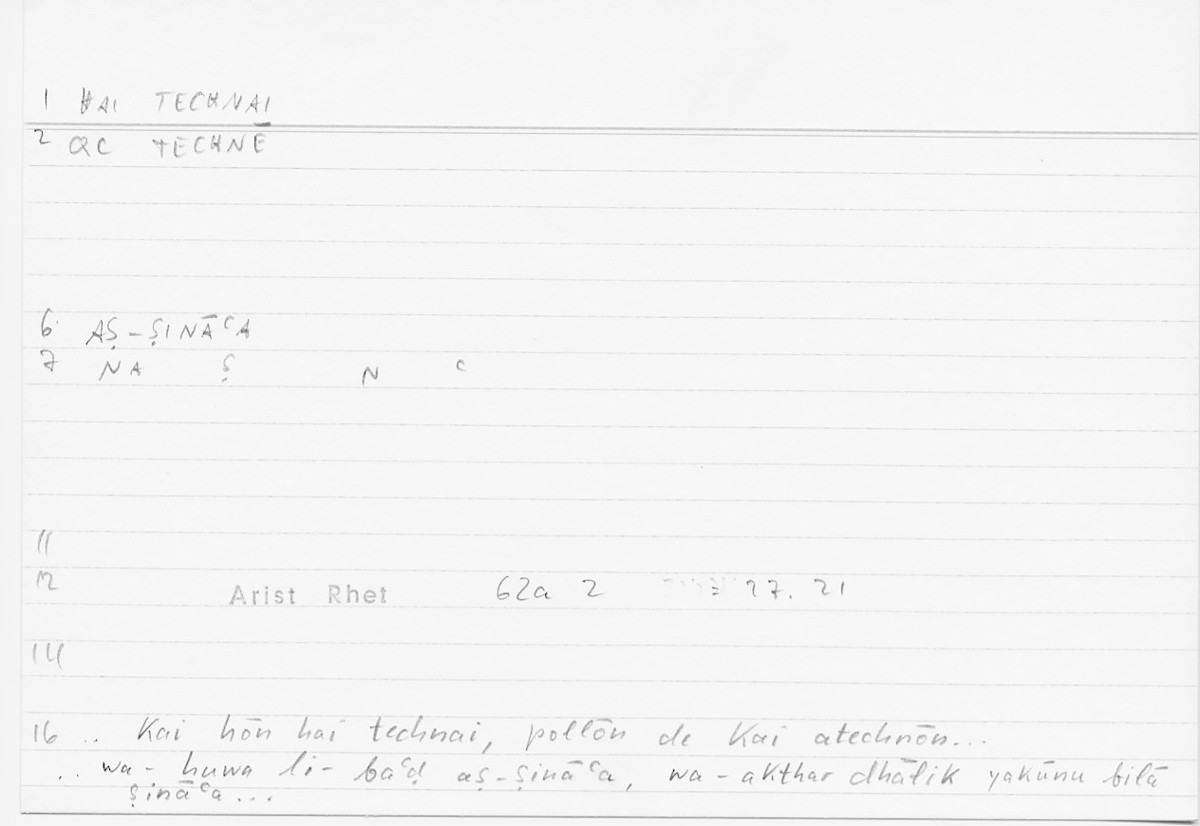 1 HAI TECHNAI
2 QC TECHNĒ
6 AṢ-ṢINĀᶜA
7 NA Ṣ N ᶜ
11
12 Arist Rhet 62a 2 27.21
14
16 .. Kai hōn hai technai, pollōn de Kai atechnōn...
.. wa-huwa li-baᶜḍ aṣ-ṣināᶜa, wa-akthar dhālik yakūnu bilā
ṣināᶜa...